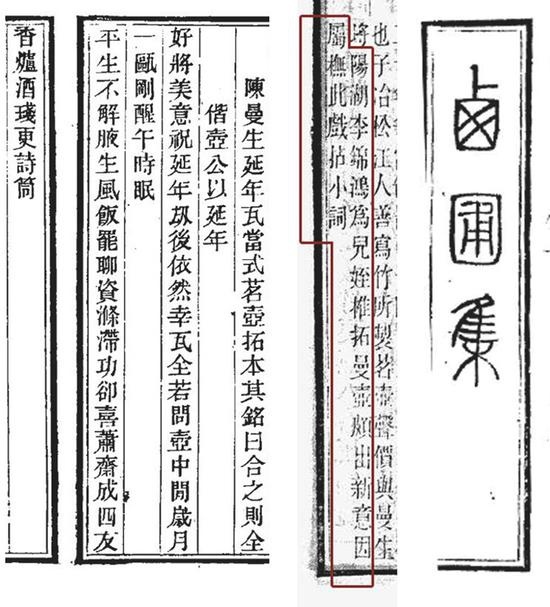 卥圃集
也子冶松江人善寫竹所製茗壺聲價與曼生
埒陽湖李錦鴻為兒姪椎拓曼壺頗出新意因
屬橅此戲拈小詞
陳曼生延年瓦當式茗壺拓本其銘曰合之則全
偕壺公以延年
好將美意祝延年刼後依然幸瓦全若問壺中閒歲月
一甌剛醒午時眠
平生不解腋生風飯罷聊資滌滯功卻喜蕭齋成四友
香爐酒琖更詩筒